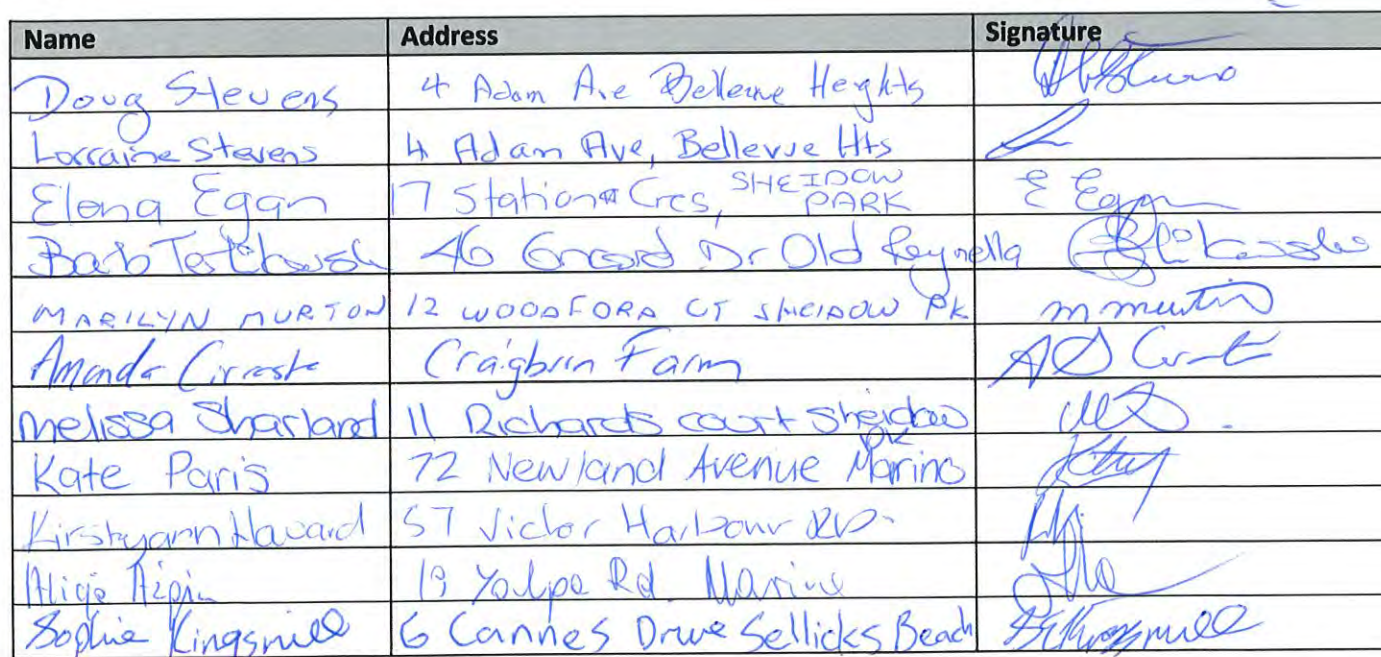 Name Address Signature
Doug Stevens 4 Adam Ave Bellevue Heights
Lorraine Stevens 4 Adam Ave, Bellevue Hts
Elena Egan 17 Station Cres, SHEIDOW PARK E Egan
Barb 46 Dr Old Reynella
MARILYN MURTON 12 WOODFORD CT SHEIDOW PK m murton
Amanda Craigburn Farm
Melissa Sharland 11 Richards court Sheidow PK
Kate Paris 72 Newland Avenue Marino
Kirstyann Havard 57 Victor Harbour RD.
19 Rd Marino
Sophie Kingsmill 6 Cannes Drive Sellicks Beach